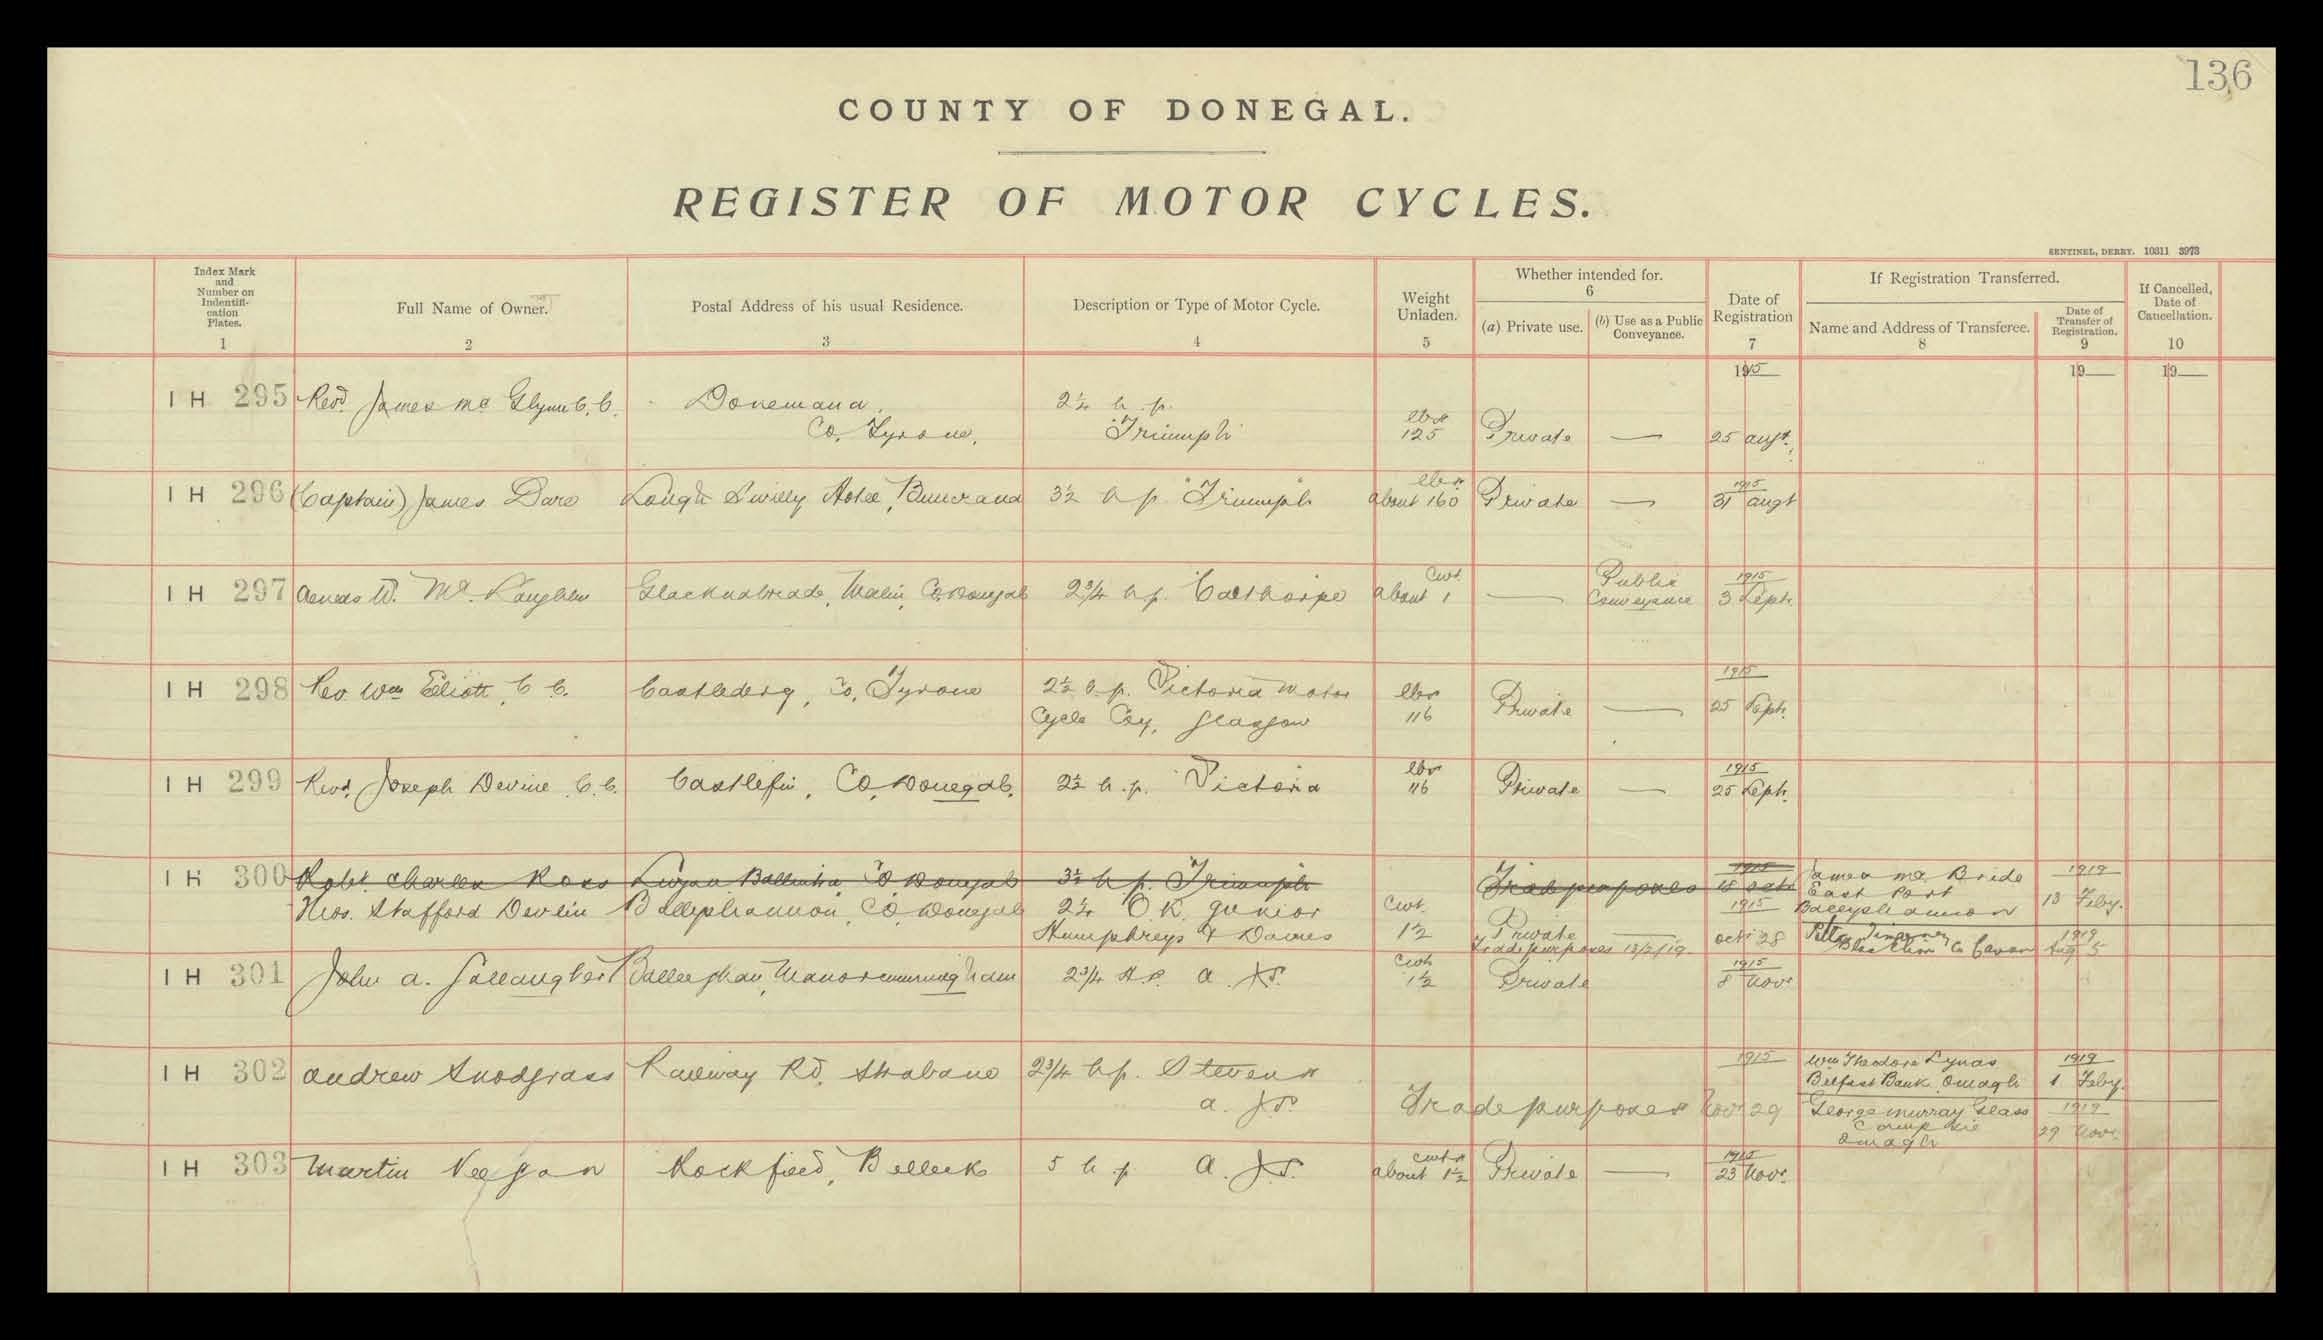 136
COUNTY OF DONEGAL.
REGISTER OF MOTOR CYCLES.
SENTINEL, DERRY. 10311 3973
Index Mark and Number on Indentifi-cation Plates. 1
Full Name of Owner. 2
Postal Address of his usual Residence. 3
Description or Type of Motor Cycle. 4
Weight Unladen. 5
Whether intended for. 6
(a) Private use.
(b) Use as a Public Conveyance.
Date of Registration 7
If Registration Transferred.
Name and Address of Transferee. 8
Date of Transfer of Registration. 9
If Cancelled, Date of Cancellation. 10
1915 19 19
I H 295 Revd. James Mc Glynn C.C. Donemana, 2¼ h.p. lbs
Co. Tyrone, "Triumph" 125 Private — 25 Augt.
I H 296 (Captain) James Dare Lough Swilly Hotel, Buncrana 3½ h.p. Triumph lbs about 160 Private — 1915 31 Augt
I H 297 Aeneas W. Mc. Laughlin Malin, Co. Donegal 2¾ h.p. Calthorpe cwt. about 1 — Public Conveyance 1915 3 Sept.
I H 298 Rev Wm Elliott, C.C. Castlederg, Co, Tyrone 2½ h.p. Victoria Motor lbs 1915
Cycle Coy, Glasgow 116 Private — 25 Sept.
I H 299 Revd. Joseph Devine C.C. Castlefin, Co, Donegal. 2½ h.p. Victoria lbs 116 Private — 1915 25 Sept.
I H 300 Robt. Charles Ross Ballintra, Co Donegal 3½ h.p. Triumph Trade purposes 1915 James Mc Bride 1919
Thos. Stafford Devlin Ballyshannon, Co Donegal 2¼ O.K. Junior cwt. 1½ Private — 1915 Oct 28 East Port Ballyshannon 13 Feby.
Humphreys & Dawes Trade purposes 13/2/19 Blacklion Co Cavan 1919 Aug 5
I H 301 John A. Gallaugher Manorcunningham 2¾ H.P. A.J.S. cwt 1½ Private 1915 8 Novr
I H 302 Andrew Snodgrass Railway Rd, Strabane 2¾ h.p. Stevens 1915 Wm Theodore Lynas 1919
Belfast Bank Omagh 1 Feby.
A.J.S. Trade purposes Novr 29 George Murray Glass 1919
Campsie
Omagh 29 Novr.
I H 303 Martin Keegan Rockfield, Belleek 5 h.p. A.J.S. cwts about 1½ Private — 1915 23 Novr.